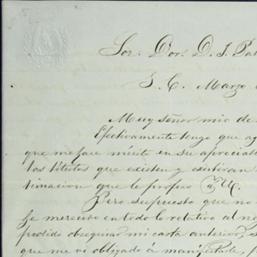 Sor. Dor. D. J. Pa
S. C. Marzo
Muy señor mio de
Efectivamente tengo que ag
que me hace mérito en su apreciab
los títulos que existen y
timacion que le profeso á U.
Pero supuesto que no
he merecido en todo lo relativo al no
podido obsequiar mi carta anterior, s
que me vi obligado á manifestarle, p